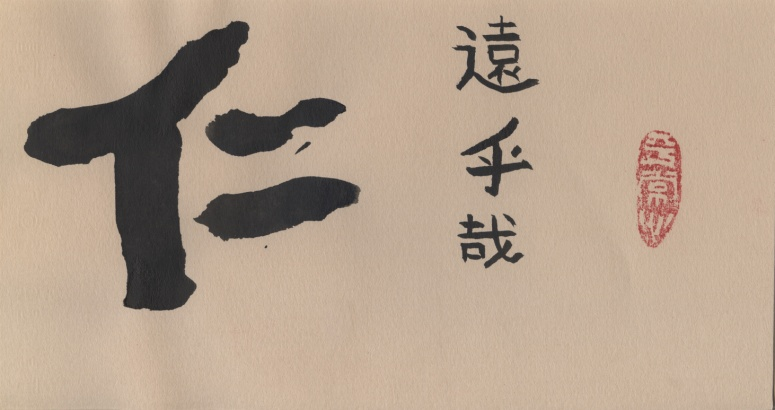 仁
遠乎哉